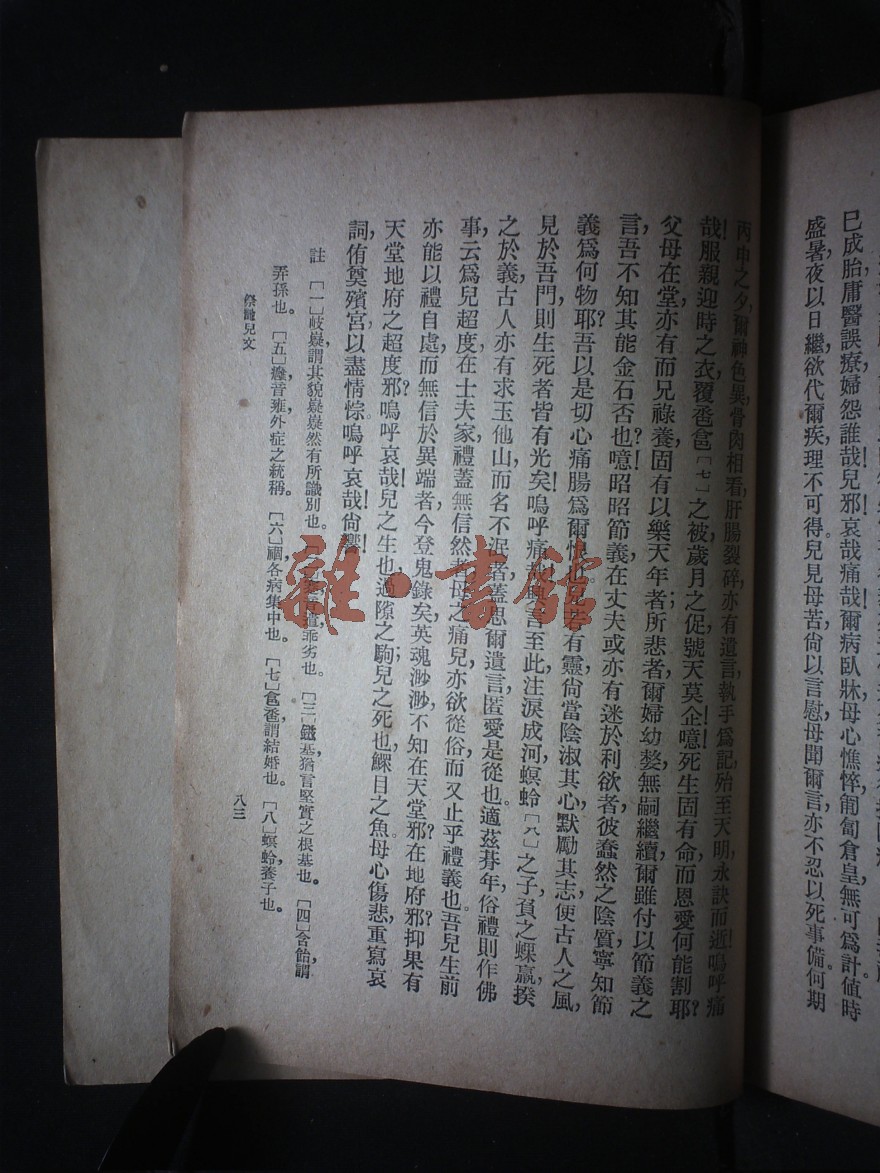 巳成胎，庸醫誤療，婦怨誰哉！兒邪哀哉痛哉！爾病臥牀，母心憔悴，匍匐倉皇，無可爲計。值時
盛暑，夜以日繼，欲代爾疾，理不可得。兒見母苦，尙以言慰，母聞爾言，亦不忍以死事備。何期
丙申之夕，爾神色異，骨肉相看，肝腸裂碎，亦有遺言，執手爲記，殆至天明，永訣而逝！嗚呼痛
哉！服親迎時之衣，覆卺㐀[七]之被，歲月之促，號天莫企！噫！死生固有命，而恩愛何能割耶？
父母在堂，亦有而兄祿養，固有以樂天年者；所悲者，爾婦幼嫠無嗣，繼續爾雖付以節義之
言，吾不知其能金石否也？噫！昭昭節義，在丈夫或亦有迷於利欲者，彼蠢然之陰質，寧知節
義爲何物耶？吾以是切心痛腸，爲爾
有靈，尙當陰淑其心，默勵其志，使古人之風，
見於吾門，則生死者皆有光矣。嗚呼痛
言至此，注淚成河。螟蛉[八]之子，負之蜾蠃，揆
之於義，古人亦有求玉他山，而名不泯者，蓋思爾遺言，匿愛是從也。適茲朞年，俗禮則作佛
事，云爲兒超度，在士夫家禮，蓋無信然者，母之痛兒，亦欲從俗，而又止乎禮義也。吾兒生前
亦能以禮自處，而無信於異端者，今登鬼錄矣，英魂渺渺，不知在天堂邪？在地府邪？抑果有
天堂地府之超度邪？嗚呼哀哉！兒之生也，過隙之駒；兒之死也，鰥目之魚。母心傷悲，重寫哀
詞，侑奠殯宮，以盡情悰。嗚呼哀哉！尙饗！
註　[一]岐嶷，謂其貌嶷嶷然有所識別也。
乖劣也。　[三]鎡基，猶言堅實之根基也。　[四]含飴，謂
弄孫也。　[五]癰音雍，外症之統稱。　[六]　，各病集中也。　[七]　卺，謂結婚也。　[八]螟蛉，養子也。
祭　兒文
八三
雜·書館